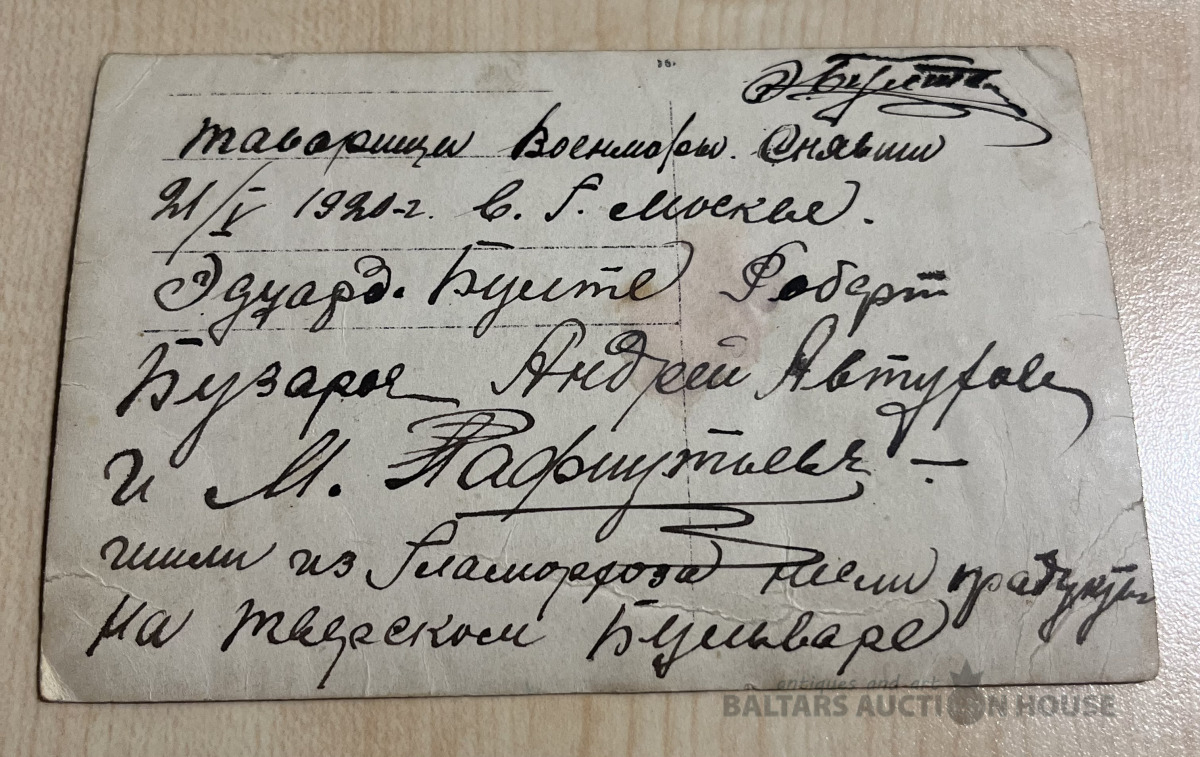 ЭБулте
таварищи Военморы. Снявши
21/V 1920-г. в. Г. Москвя.
Эдуард. Булте Роберт
Бузароя Андрей Автухов
и М. Пафнутьевъ —
шли из Гламорхоза несли прадукты
на Тверском Бульваре
antiques and art
BALTARS AUCTION HOUSE